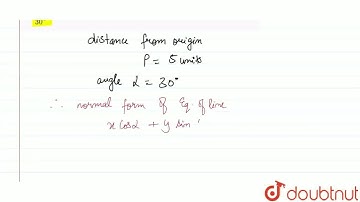 30°
distance from origin
P = 5 units
angle α = 30°
∴ normal form of Eq. of line
x cosα + y sin
doubtnut